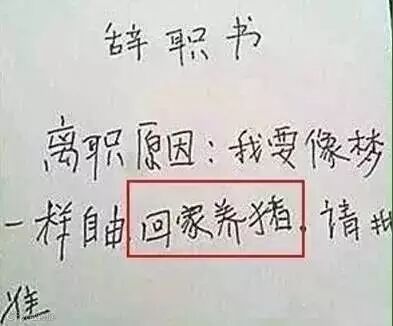 辞职书
离职原因:我要像梦
一样自由,回家养猪。请批
准